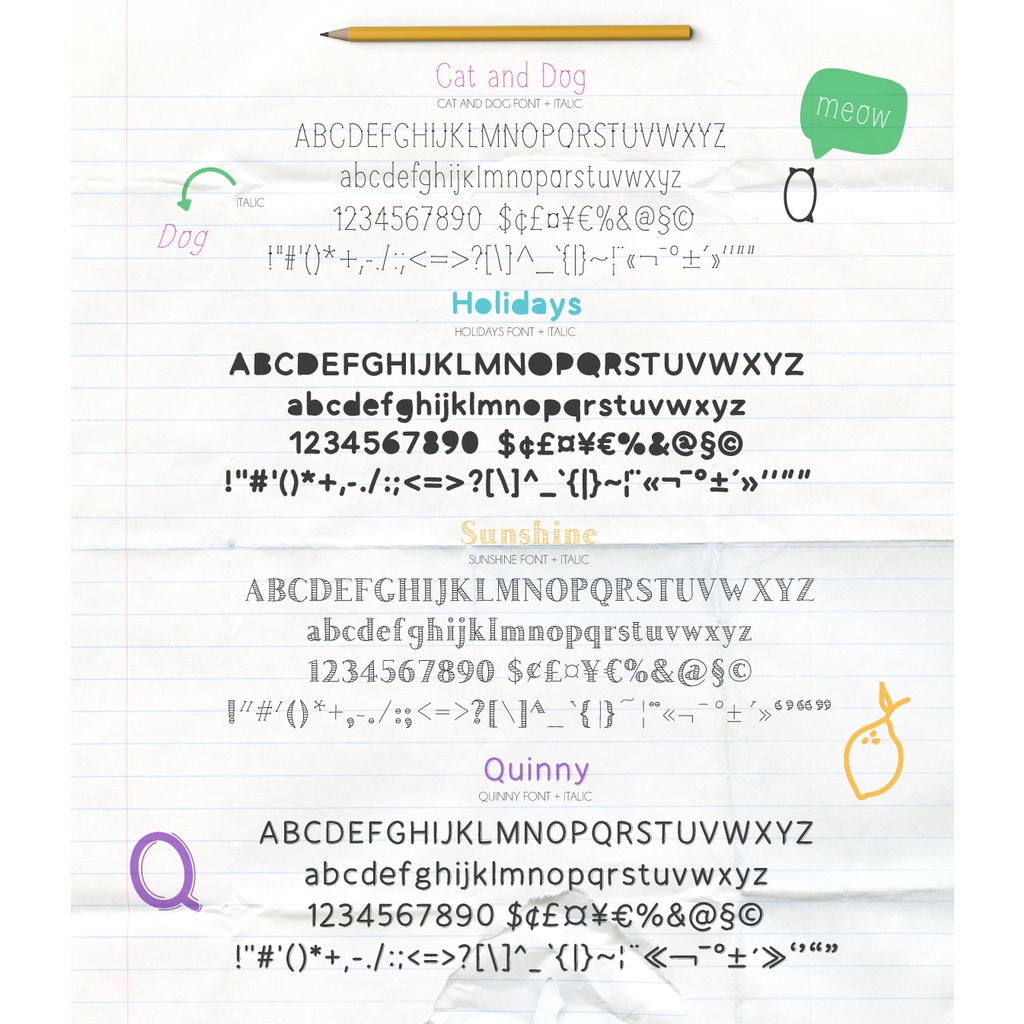 Cat and Dog
CAT AND DOG FONT + ITALIC
meow
ABCDEFGHIJKLMNOPQRSTUVWXYZ
abcdefghijklmnopqrstuvwxyz
ITALIC
Dog
1234567890 $¢£¤¥€%&@§©
!"#'()*+,-./:;<=>?[\]^_`{|}~¦¨«¬¯°±´»''""
Holidays
HOLIDAYS FONT + ITALIC
ABCDEFGHIJKLMNOPQRSTUVWXYZ
abcdefghijklmnopqrstuvwxyz
1234567890 $¢£¤¥€%&@§©
!"#'()*+,-./:;<=>?[\]^_`{|}~¦¨«¬¯°±´»''""
Sunshine
SUNSHINE FONT + ITALIC
ABCDEFGHIJKLMNOPQRSTUVWXYZ
abcdefghijklmnopqrstuvwxyz
1234567890 $¢£¤¥€%&@§©
!"#'()*+,-./:;<=>?[\]^_`{|}~¦¨«¬¯°±´»‘’“”
Quinny
QUINNY FONT + ITALIC
Q
ABCDEFGHIJKLMNOPQRSTUVWXYZ
abcdefghijklmnopqrstuvwxyz
1234567890 $¢£¤¥€%&@§©
!"#'()*+,-./:;<=>?[\]^_`{|}~¦¨«¬¯°±´»‘’“”